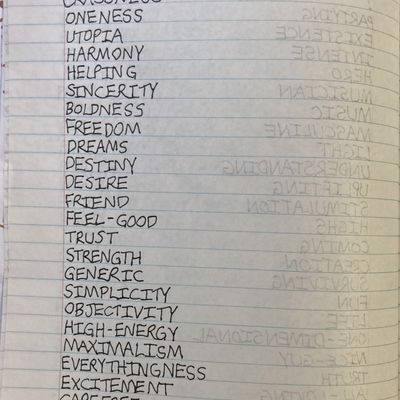 ONENESS
UTOPIA
HARMONY
HELPING
SINCERITY
BOLDNESS
FREEDOM
DREAMS
DESTINY
DESIRE
FRIEND
FEEL-GOOD
TRUST
STRENGTH
GENERIC
SIMPLICITY
OBJECTIVITY
HIGH-ENERGY
MAXIMALISM
EVERYTHINGNESS
EXCITEMENT
CAREFREE
PARTYING
EXISTENCE
INTENSE
HERO
MUSICIAN
MUSIC
MASCULINE
LIGHT
UNDERSTANDING
UPLIFTING
STIMULATION
HIGHS
COMING
CREATION
SURVIVING
FUN
LIFE
ONE-DIMENSIONAL
NICE-GUY
TRUTH
ALL-LOVING